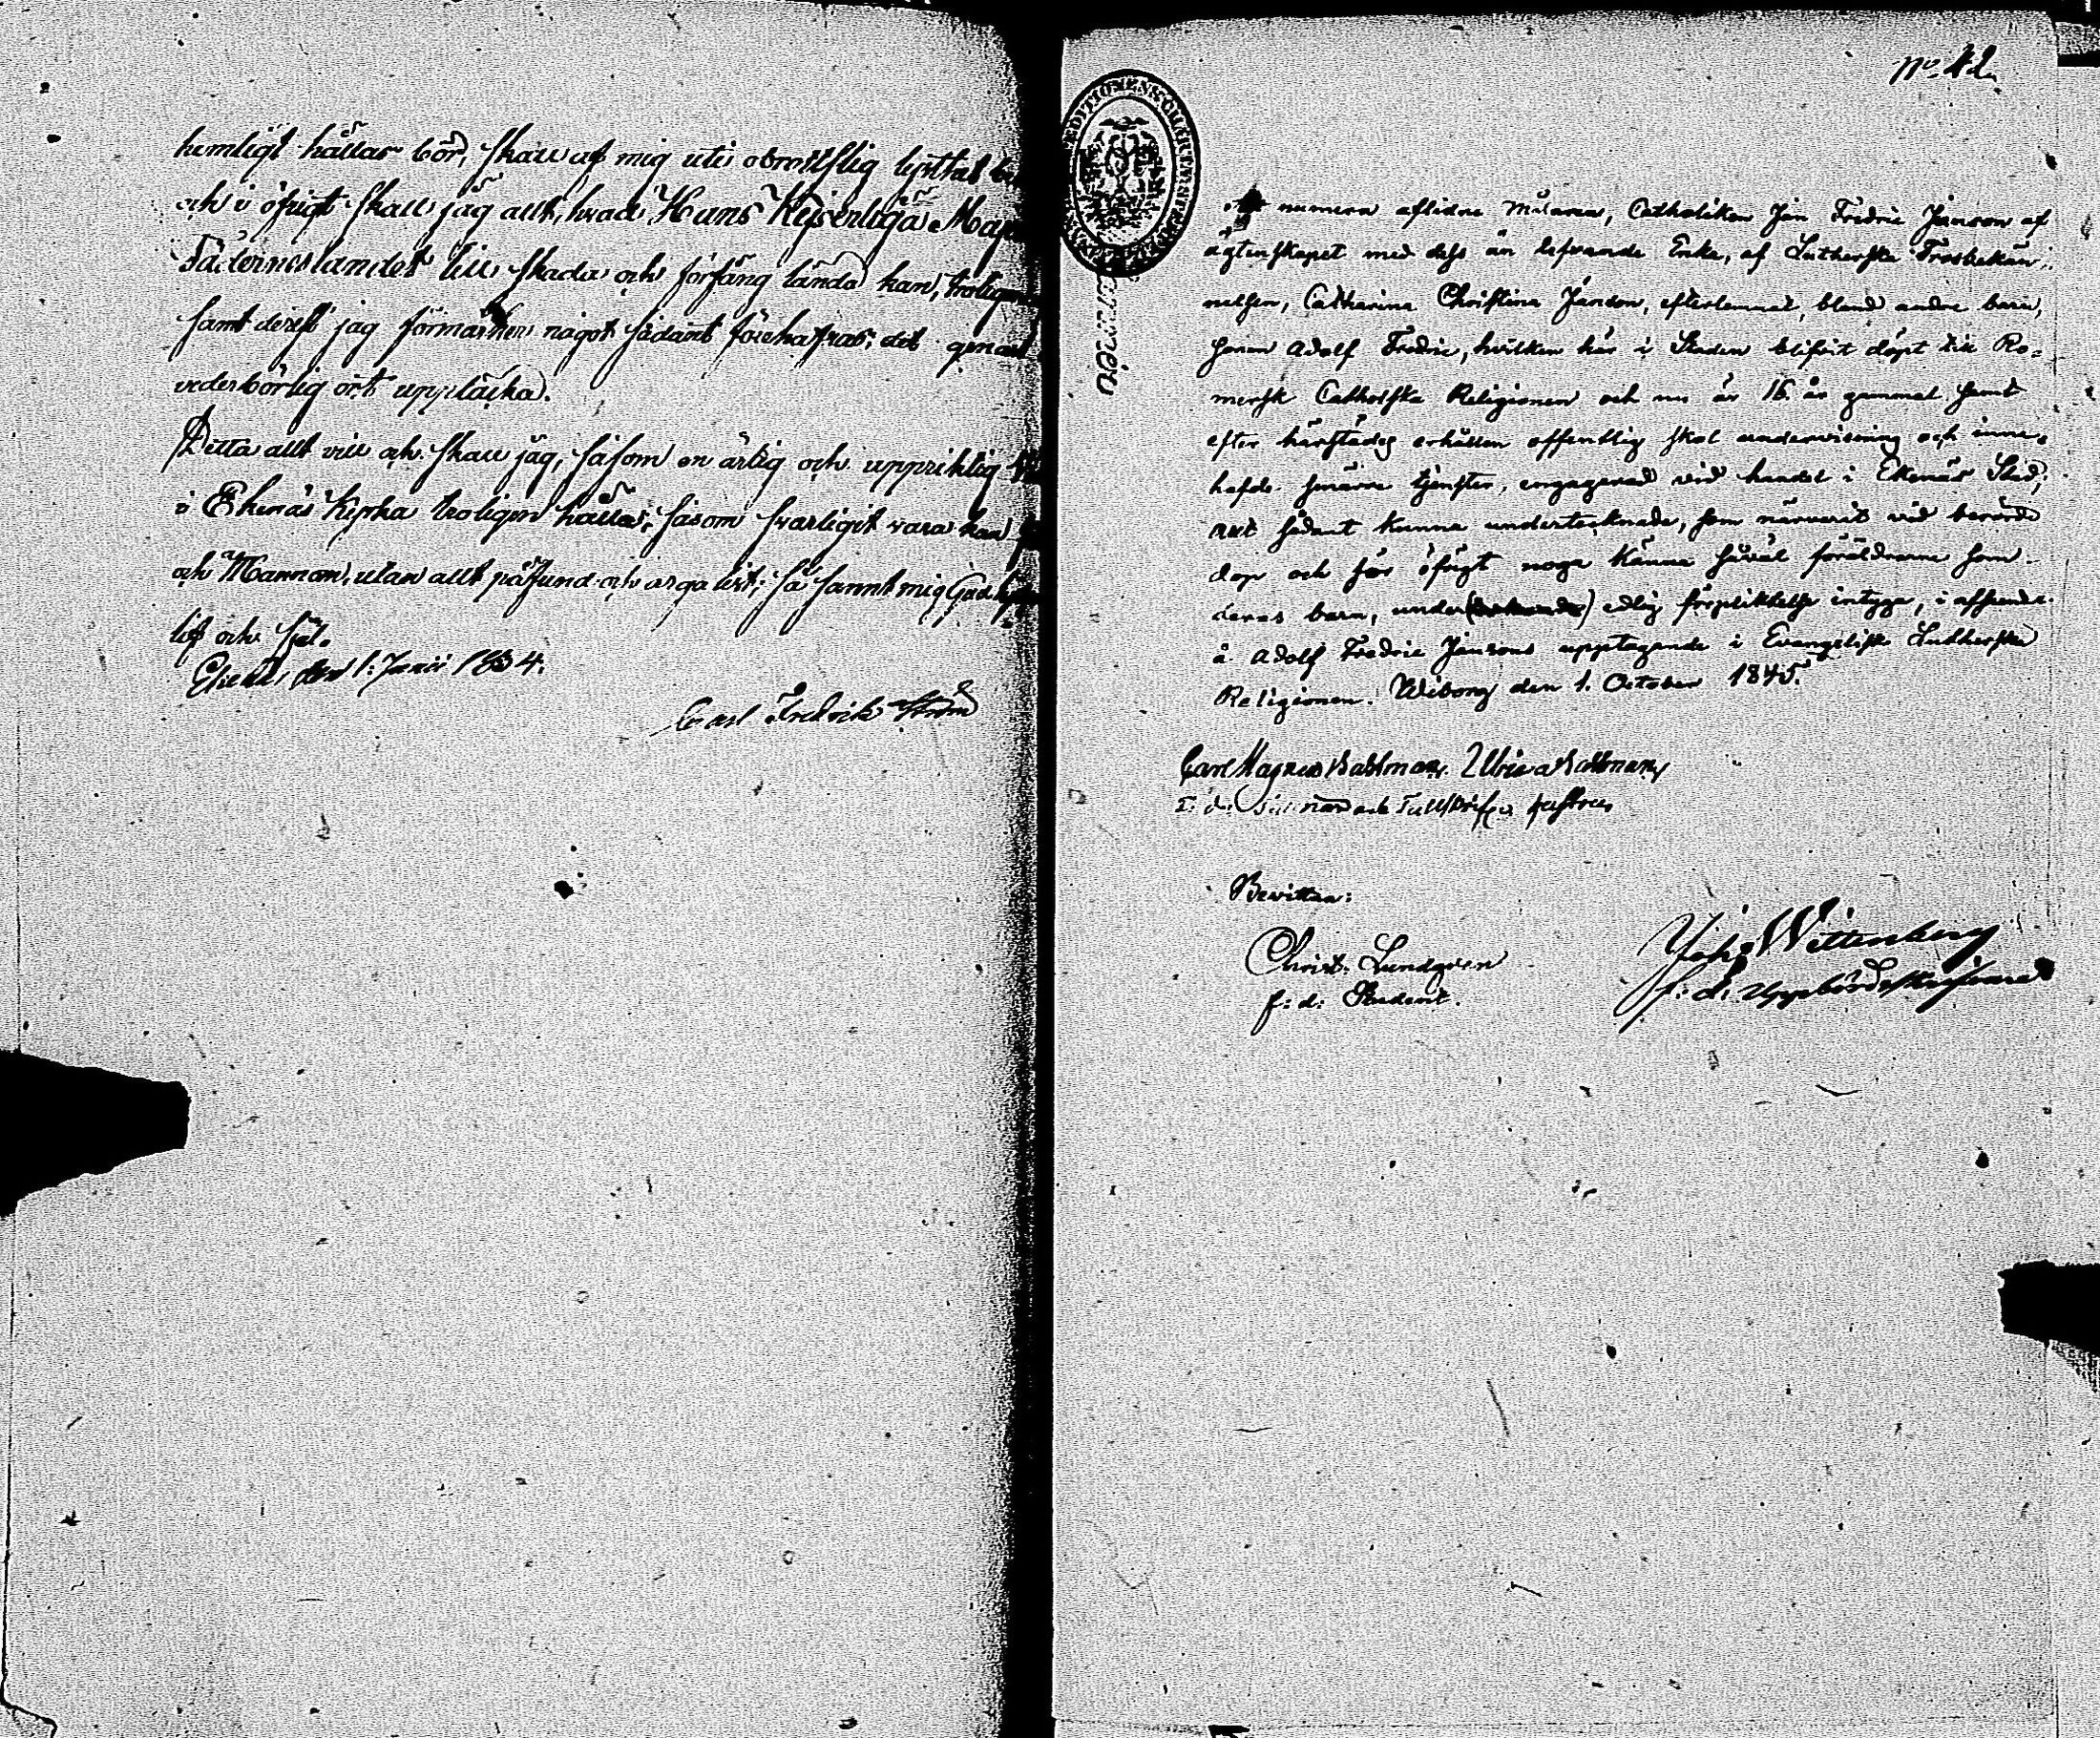 hemligt hållas bör, skall af mig uti obrottslig tysthet
och i öfrigt skall jag allt, hvad Hans Kejserliga
Fäderneslandet till skada och förfång lända kan, troligen
samt derest jag förmärker något sådant förehafvas, det genast
vederbörlig ort upptäcka.
Detta allt vill och skall jag, såsom en ärlig och uppriktig
i Ekenäs Kyrka troligen hålla, såsom svarligit vara kan
och Mannom, utan allt påfund och arga list; så sannt mig Gud
lif och själ.
Ekenäs, den 1. Junii 1834.
Carl Fredrik Ström
No 42.
numera aflidne Målaren, Catholiken Jan Fredric Janson af
ägtenskapet med dess än lefvande Enka, af Lutherska Trosbekän-
nelsen, Catharina Christina Janson, efterlemnat, bland andra barn,
sonen Adolf Fredric, hvilken här i Staden blifvit döpt till Ro-
mersk Catholska Religionen och nu är 16 år gammal samt
efter härstädes erhållen offentlig skol undervisning och inne-
hafde smärre tjenster, engagerad vid handel i Ekenäs Stad;
allt sådant kunna undertecknade, som närvarit vid berörde
dop och för öfrigt noga känna såväl föräldrarne som
deras barn, under edlig förpliktelse intyga, i afseende
å Adolf Fredric Jansons upptagande i Evangelisk Lutherska
Religionen. Wiborg den 1. October 1845.
Carl Magnus
hustru
Bevittna:
Christ. Lundgren
f: d: Student.
Joh. Wittenberg
f: d: Uppbördskrifvare